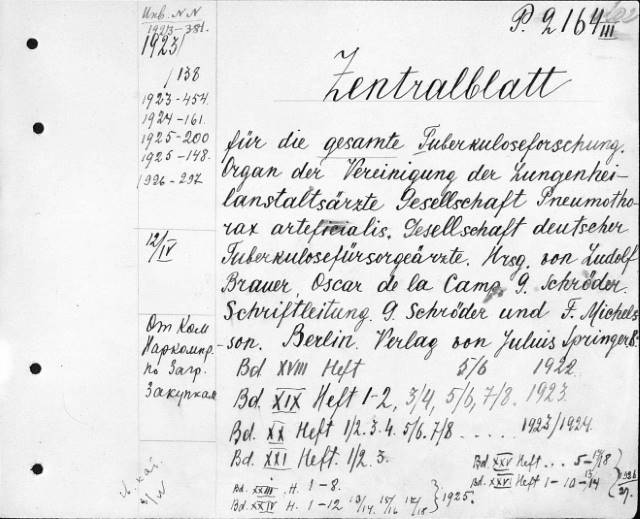 Инв. NN
1923-381.
1923/
/138
1923-454
1924-161.
1925-200
1925-148.
1926-297
12/IV
От Ком
Наркомпр.
по Загр.
Закупкам
P. 2164 III
Zentralblatt
für die gesamte Tuberkuloseforschung.
Organ der Vereinigung der Lungenhei-
lanstaltsärzte Gesellschaft Pneumotho-
rax arteficialis. Gesellschaft deutscher
Tuberkulosefürsorgeärzte. Hrsg. von Ludolf
Brauer, Oscar de la Camp, G. Schröder.
Schriftleitung G. Schröder und F. Michels-
son. Berlin. Verlag von Julius Springer
Bd XVIII Heft 5/6 1922
Bd. XIX Heft 1-2, 3/4, 5/6, 7/8. 1923.
Bd. XX Heft 1/2. 3. 4. 5/6. 7/8 ..... 1923/1924.
Bd. XXI Heft. 1/2. 3.
Bd. XXIII. H. 1-8.
Bd. XXIV H. 1-12 13/14. 15/16 17/18 } 1925.
Bd. XXV Heft .. 5-17/18
Bd. XXVI Heft 1-10-13/14 } 1926/27.